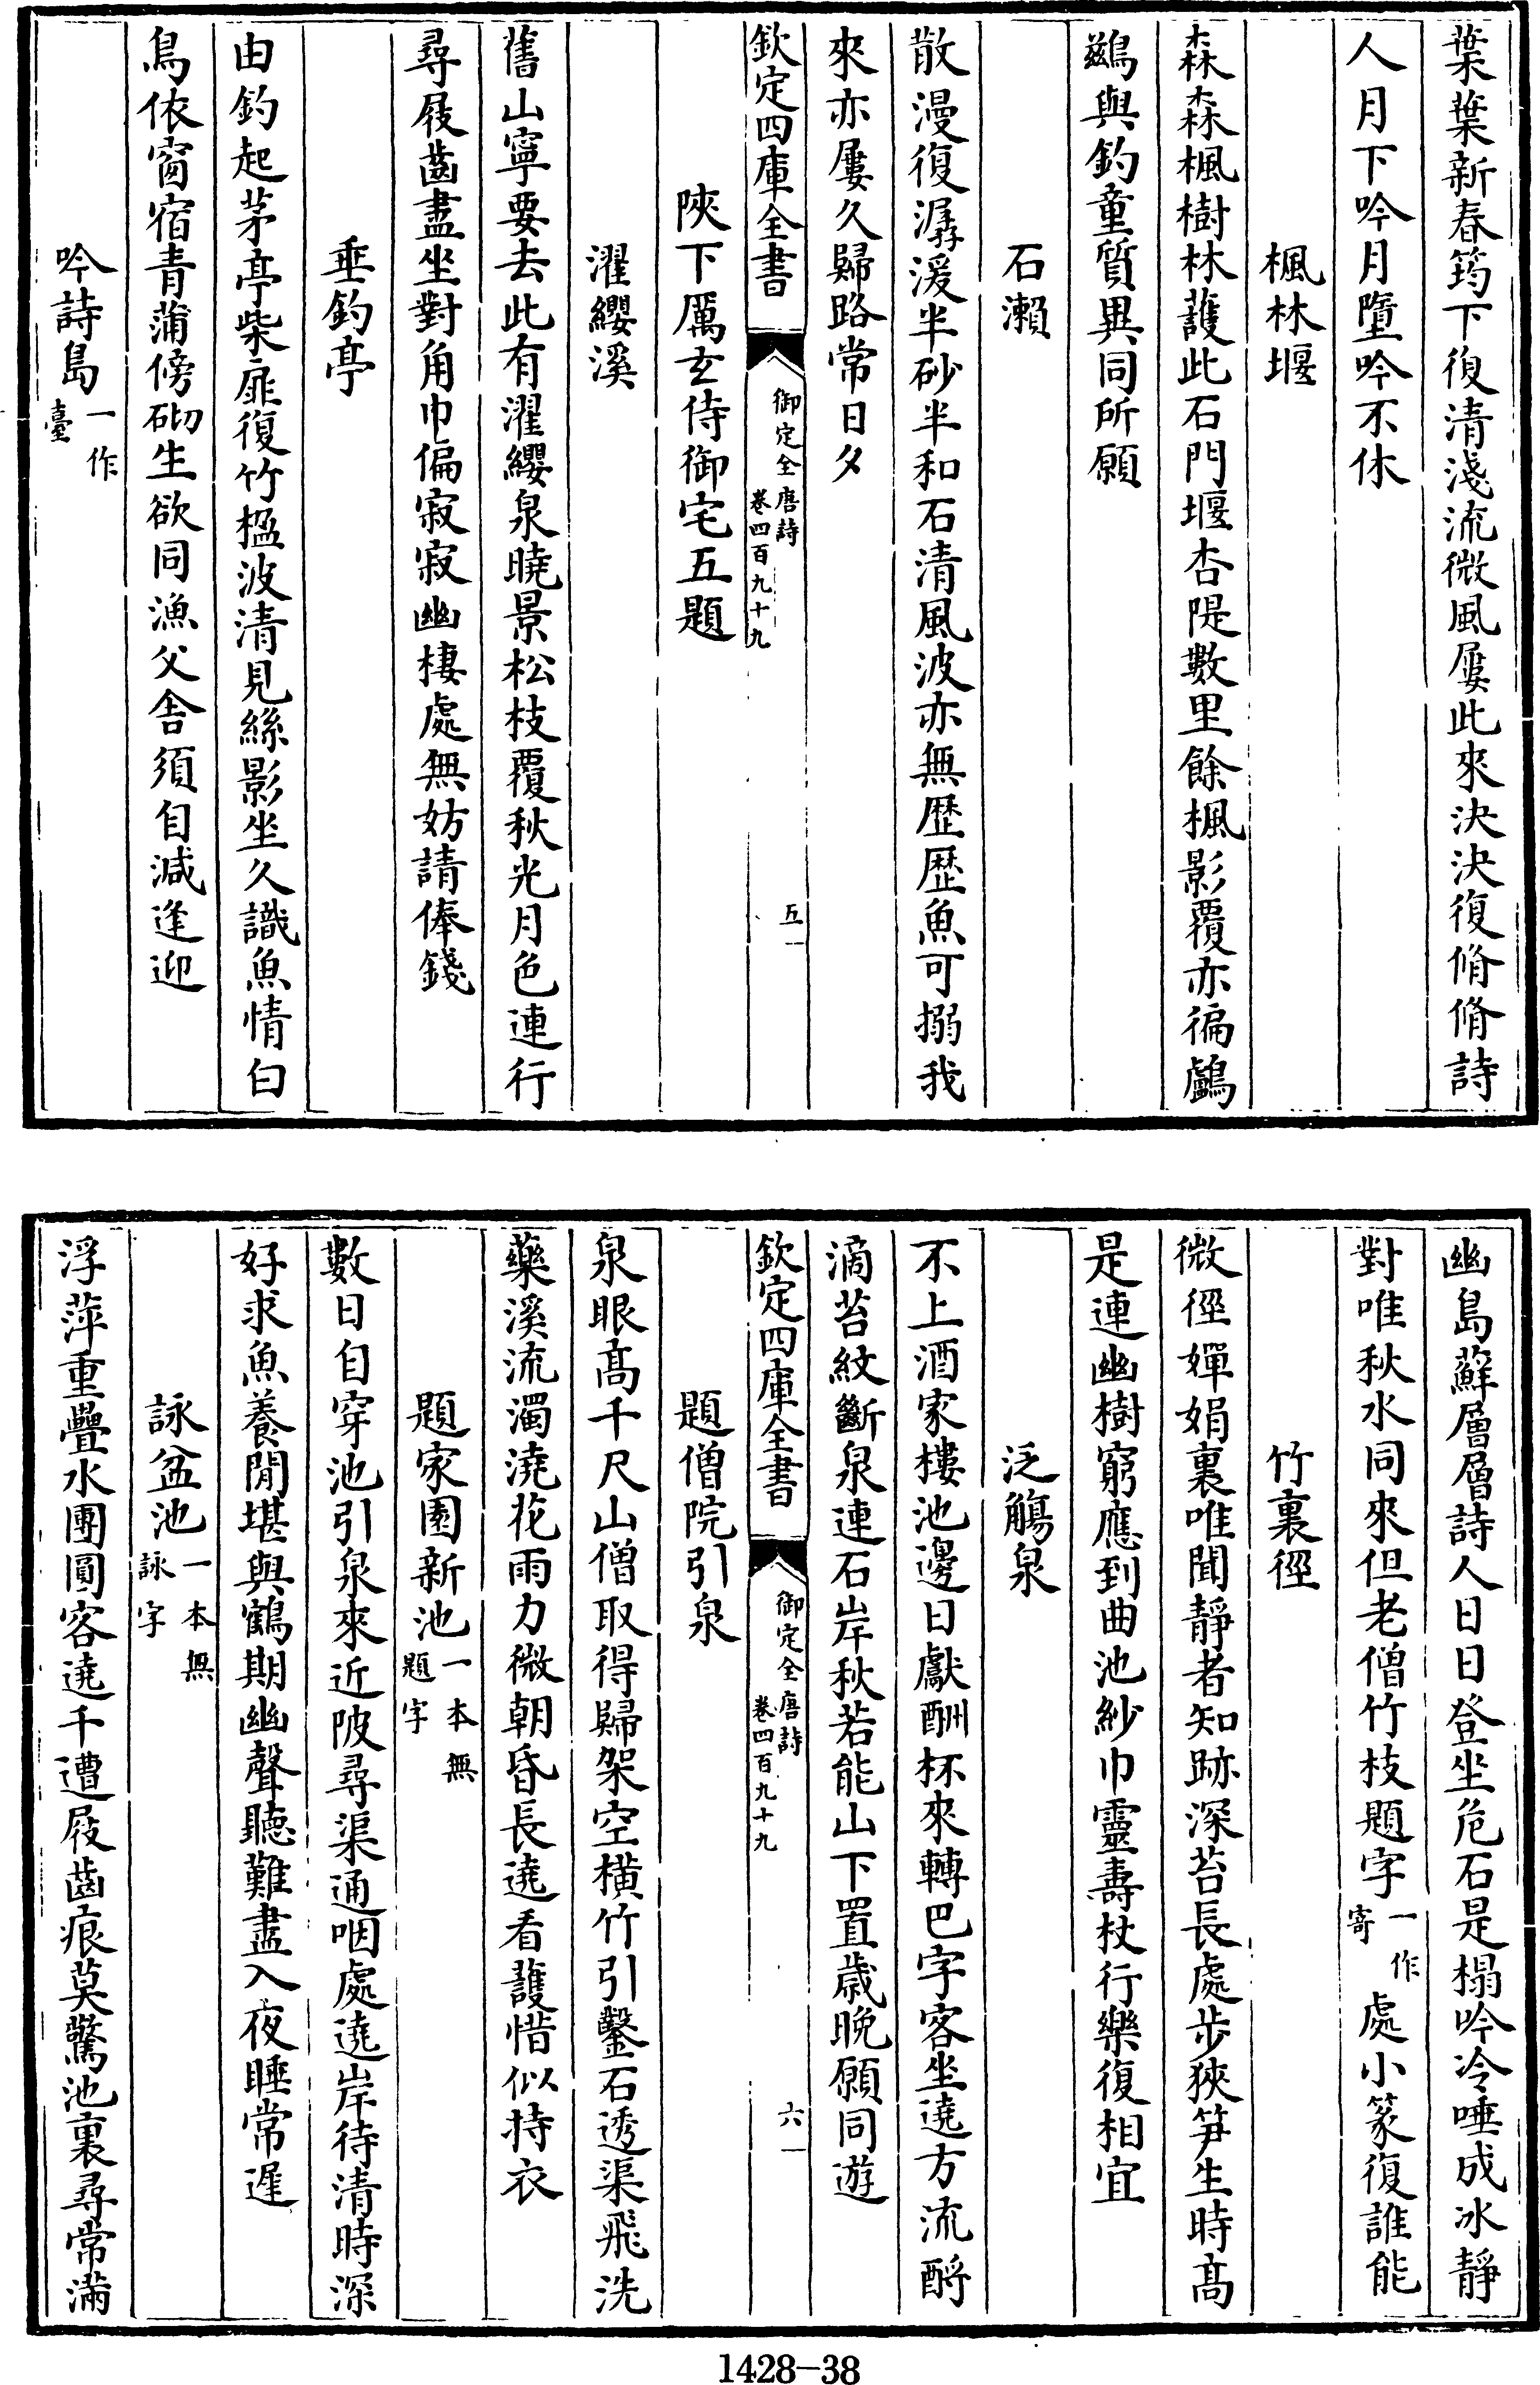 葉葉新春筠下復清淺流微風屢此來決決復翛翛詩
人月下吟月墮吟不休
楓林堰
森森楓樹林護此石門堰杏隄數里餘楓影覆亦徧鸕
鷀與釣童質異同所願
石瀨
散漫復潺湲半砂半和石清風波亦無歴歴魚可搦我
來亦屢久歸路常日夕
欽定四庫全書
御定全唐詩
卷四百九十九
五
陝下厲玄侍御宅五題
濯纓溪
舊山寧要去此有濯纓泉曉景松枝覆秋光月色連行
尋屐齒盡坐對角巾偏寂寂幽棲處無妨請俸錢
垂釣亭
由釣起茅亭柴扉復竹楹波清見絲影坐久識魚情白
鳥依窗宿青蒲傍砌生欲同漁父舍須自減逢迎
吟詩島一作臺
幽島蘚層層詩人日日登坐危石是榻吟冷唾成冰靜
對唯秋水同來但老僧竹枝題字一作寄處小篆復誰能
竹裏徑
微徑嬋娟裏唯聞靜者知跡深苔長處步狹笋生時高
是連幽樹窮應到曲池紗巾靈壽杖行樂復相宜
泛觴泉
不上酒家樓池邊日獻酬杯來轉巴字客坐遶方流酹
滴苔紋斷泉連石岸秋若能山下置歲晚願同遊
欽定四庫全書
御定全唐詩
卷四百九十九
六
題僧院引泉
泉眼高千尺山僧取得歸架空橫竹引鑿石透渠飛洗
藥溪流濁澆花雨力微朝昏長遶看護惜似持衣
題家園新池一本無題字
數日自穿池引泉來近陂尋渠通咽處遶岸待清時深
好求魚養閒堪與鶴期幽聲聽難盡入夜睡常遲
詠盆池一本無詠字
浮萍重疊水團圓客遶千遭屐齒痕莫驚池裏尋常滿
1428-38